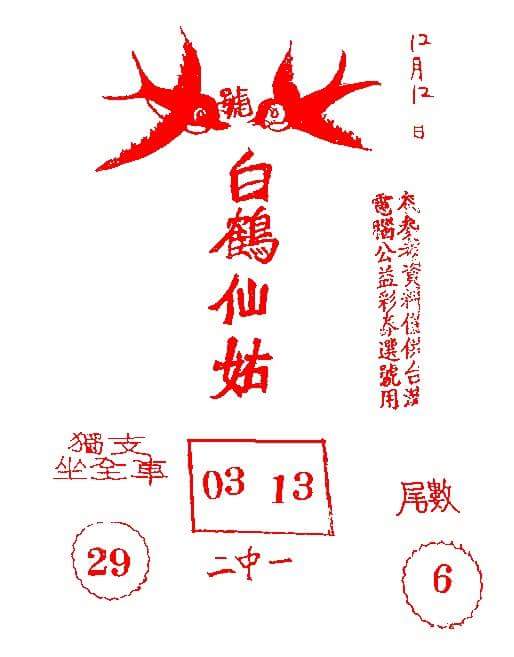 12月12日
號
白鶴仙姑
本參考資料僅供台灣
電腦公益彩券選號用
獨支
坐全車
29
03 13
二中一
尾數
6